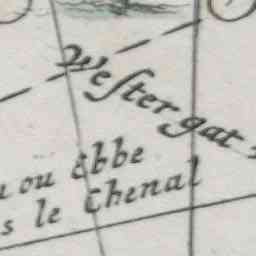 Weſter gat
ou Ebbe
s le Chenal